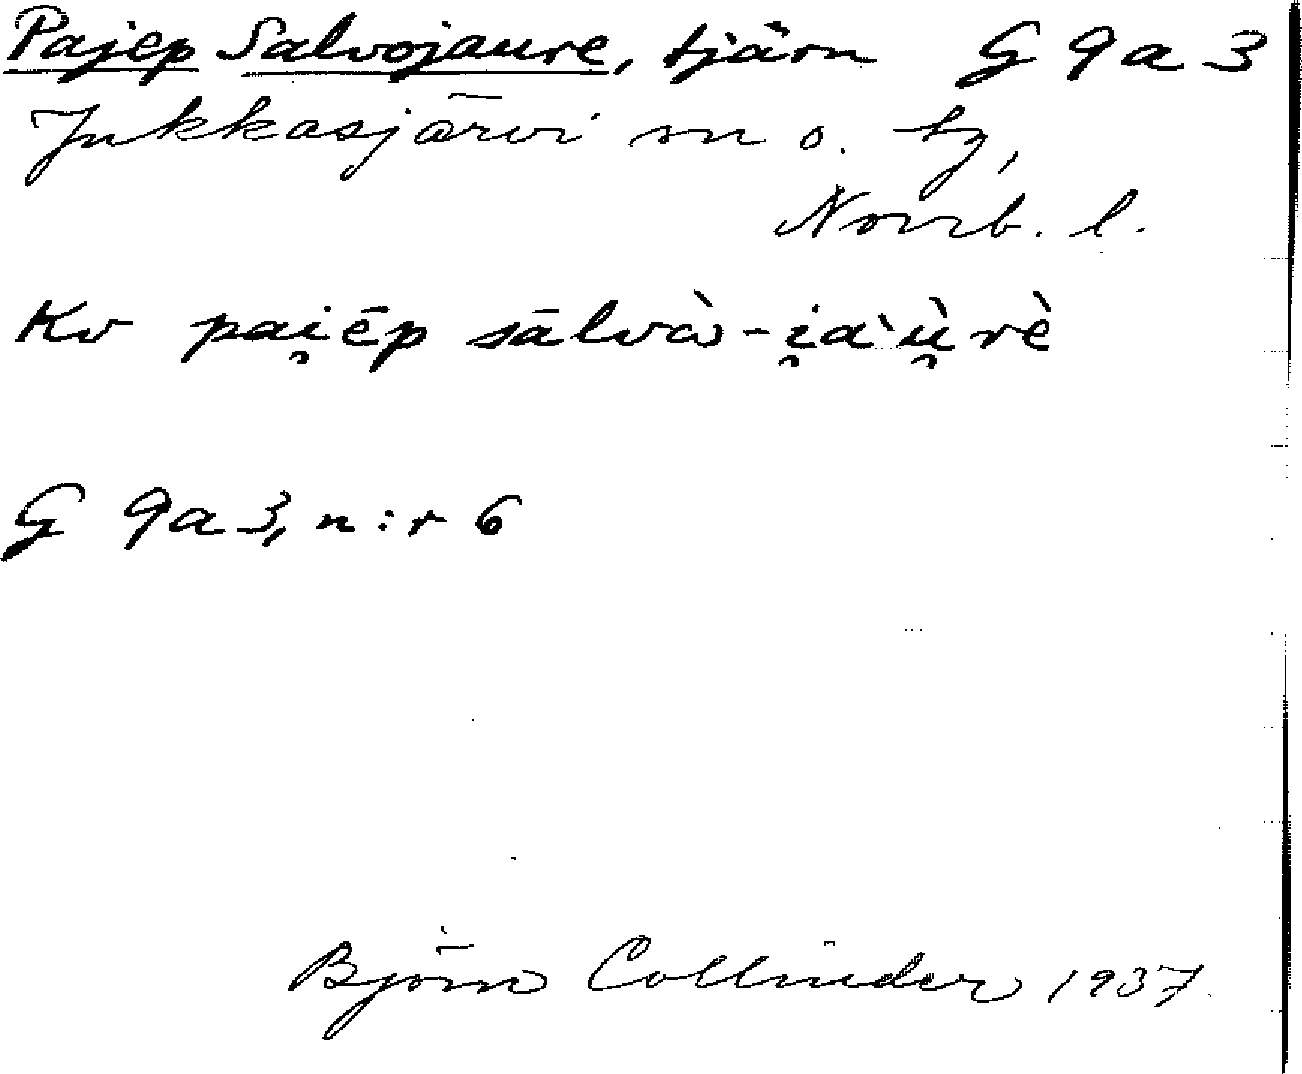 Pajep Salvojaure, tjärn G 9 a 3
Jukkasjärvi sn o. tg,
Norrb. l.
Kv pai̯ēp sālvȧ̀-i̯a'ù̯rè
G 9a 3, n:r 6
Björn Collinder 1937.